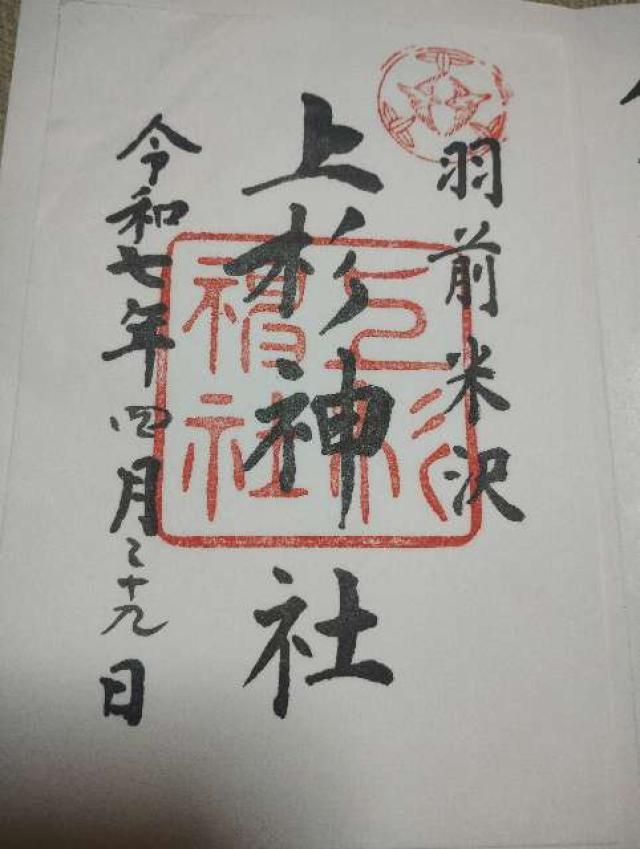 羽前米沢
上杉神社
令和七年四月二十九日
上杉神社